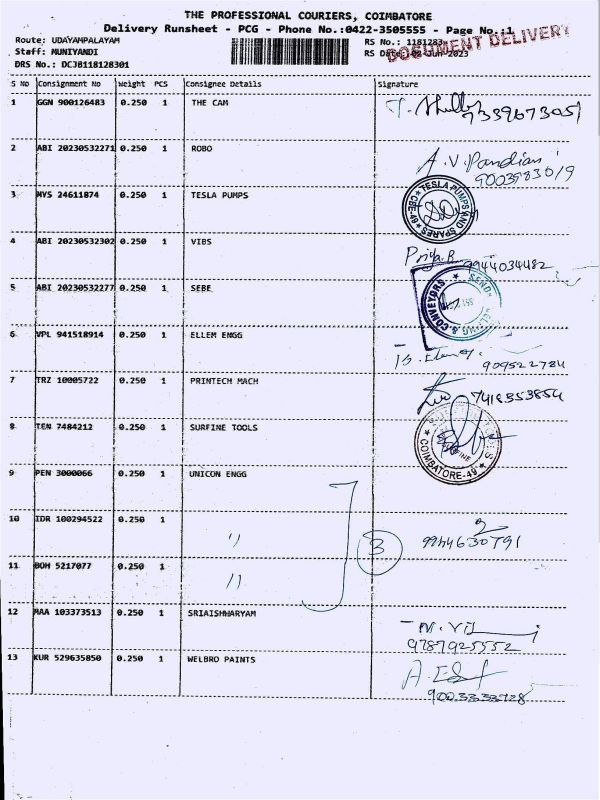 THE PROFESSIONAL COURIERS, COIMBATORE
Delivery Runsheet - PCG - Phone No.:0422-3505555 - Page No.:1
Route: UDAYAMPALAYAM
Staff: MUNIYANDI
DRS No.: DCJB118128301
RS No.: 1181283
RS Date: 02-Jun-2023
DOCUMENT DELIVERY
S No Consignment No Weight PCS Consignee Details Signature
1 GGN 900126483 0.250 1 THE CAM
9339673051
2 ABI 20230532271 0.250 1 ROBO
A.V.Pandian
9003983019
3 MYS 24611874 0.250 1 TESLA PUMPS
TESLA PUMPS AND SPARES CBE-49
4 ABI 20230532302 0.250 1 VIBS
Priya.B 9944034482
5 ABI 20230532277 0.250 1 SEBE
& CONVEYORS
6 VPL 941518914 0.250 1 ELLEM ENGG
909522784
7 TRZ 10005722 0.250 1 PRINTECH MACH
7418353854
8 TEN 7484212 0.250 1 SURFINE TOOLS
COIMBATORE-49
9 PEN 3000066 0.250 1 UNICON ENGG
10 IDR 100294522 0.250 1 〃
3
9944630791
11 BOM 5217077 0.250 1 〃
12 MAA 103373513 0.250 1 SRIAISHWARYAM
9787925552
13 KUR 529635850 0.250 1 WELBRO PAINTS
9003333928